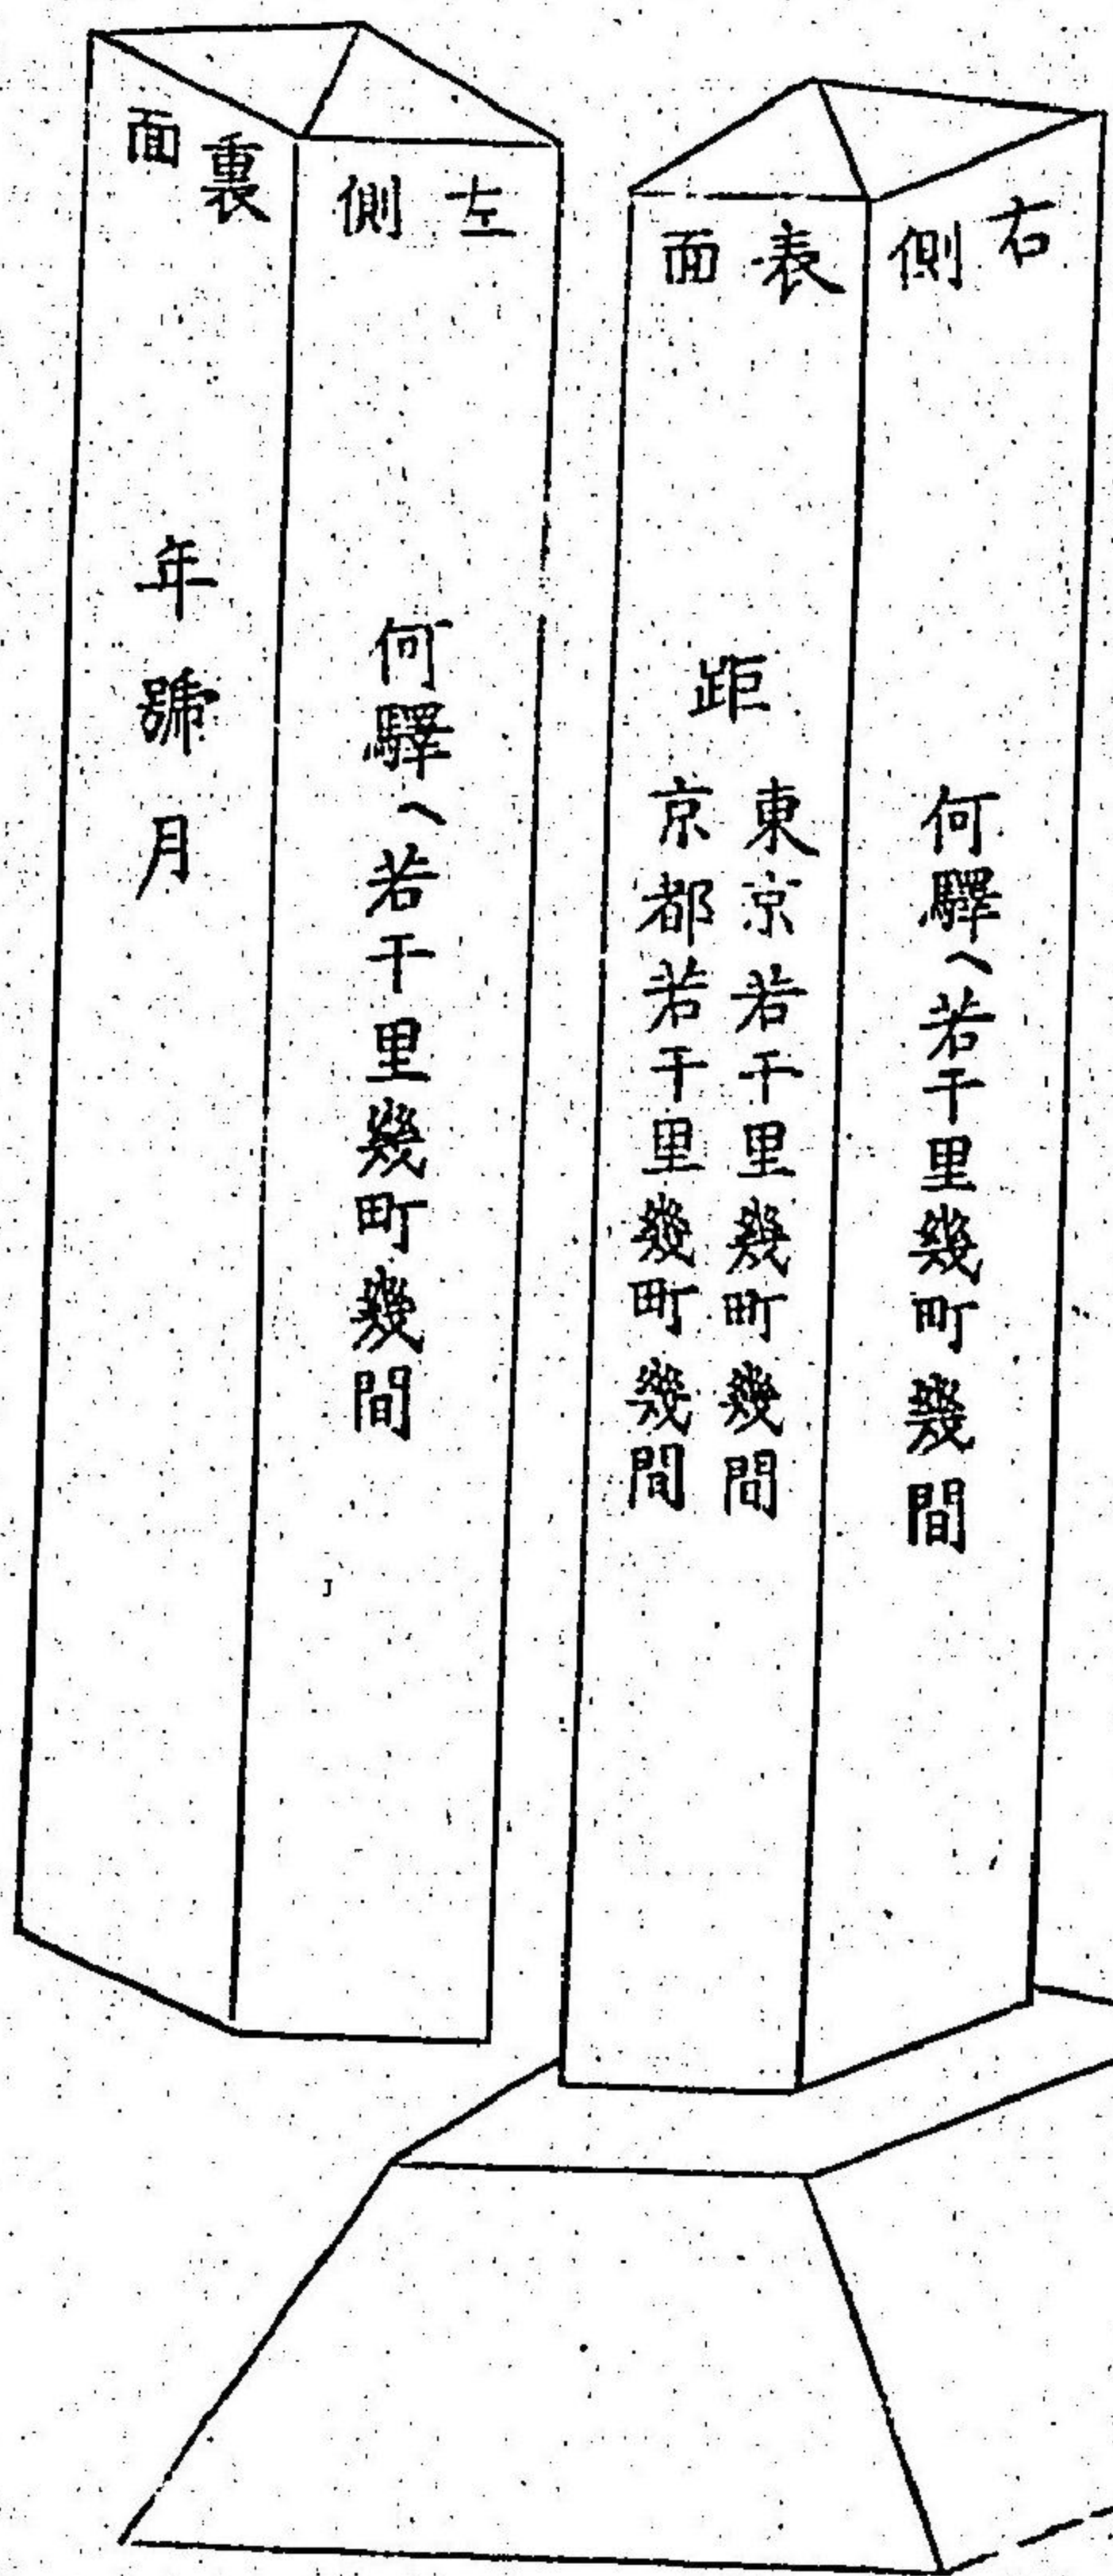 右側
何驛へ若干里幾町幾間
表面
距
東京若干里幾町幾間
京都若干里幾町幾間
左側
何驛へ若干里幾町幾間
裏面
年號月